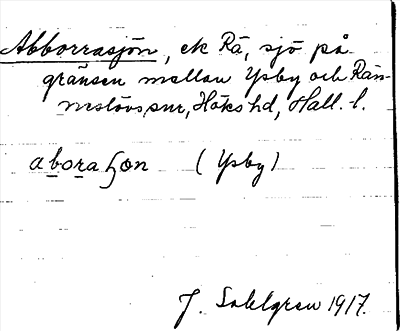 Abborrasjön, ek Rä, sjö på
gränsen mellan Ysby och Rän-
neslövs snr, Höks hd, Hall. l.
aboraɧon (Ysby)
J. Sahlgren 1917.